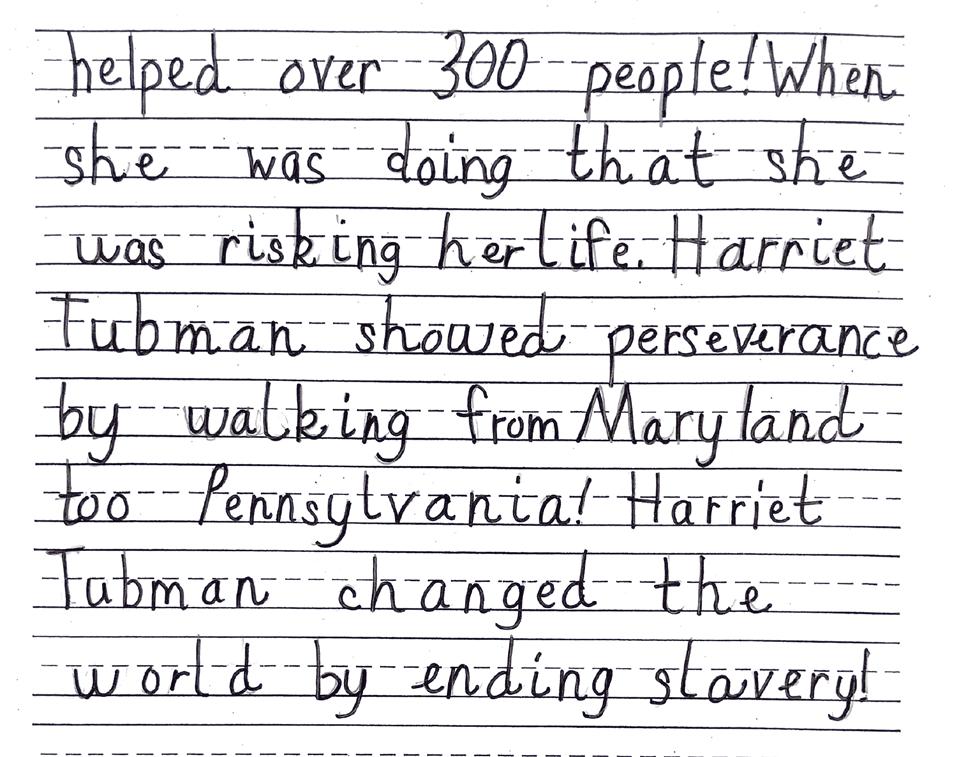 helped over 300 people! When
she was doing that she
was risking her life. Harriet
Tubman showed perseverance
by walking from Maryland
too Pennsylvania! Harriet
Tubman changed the
world by ending slavery!